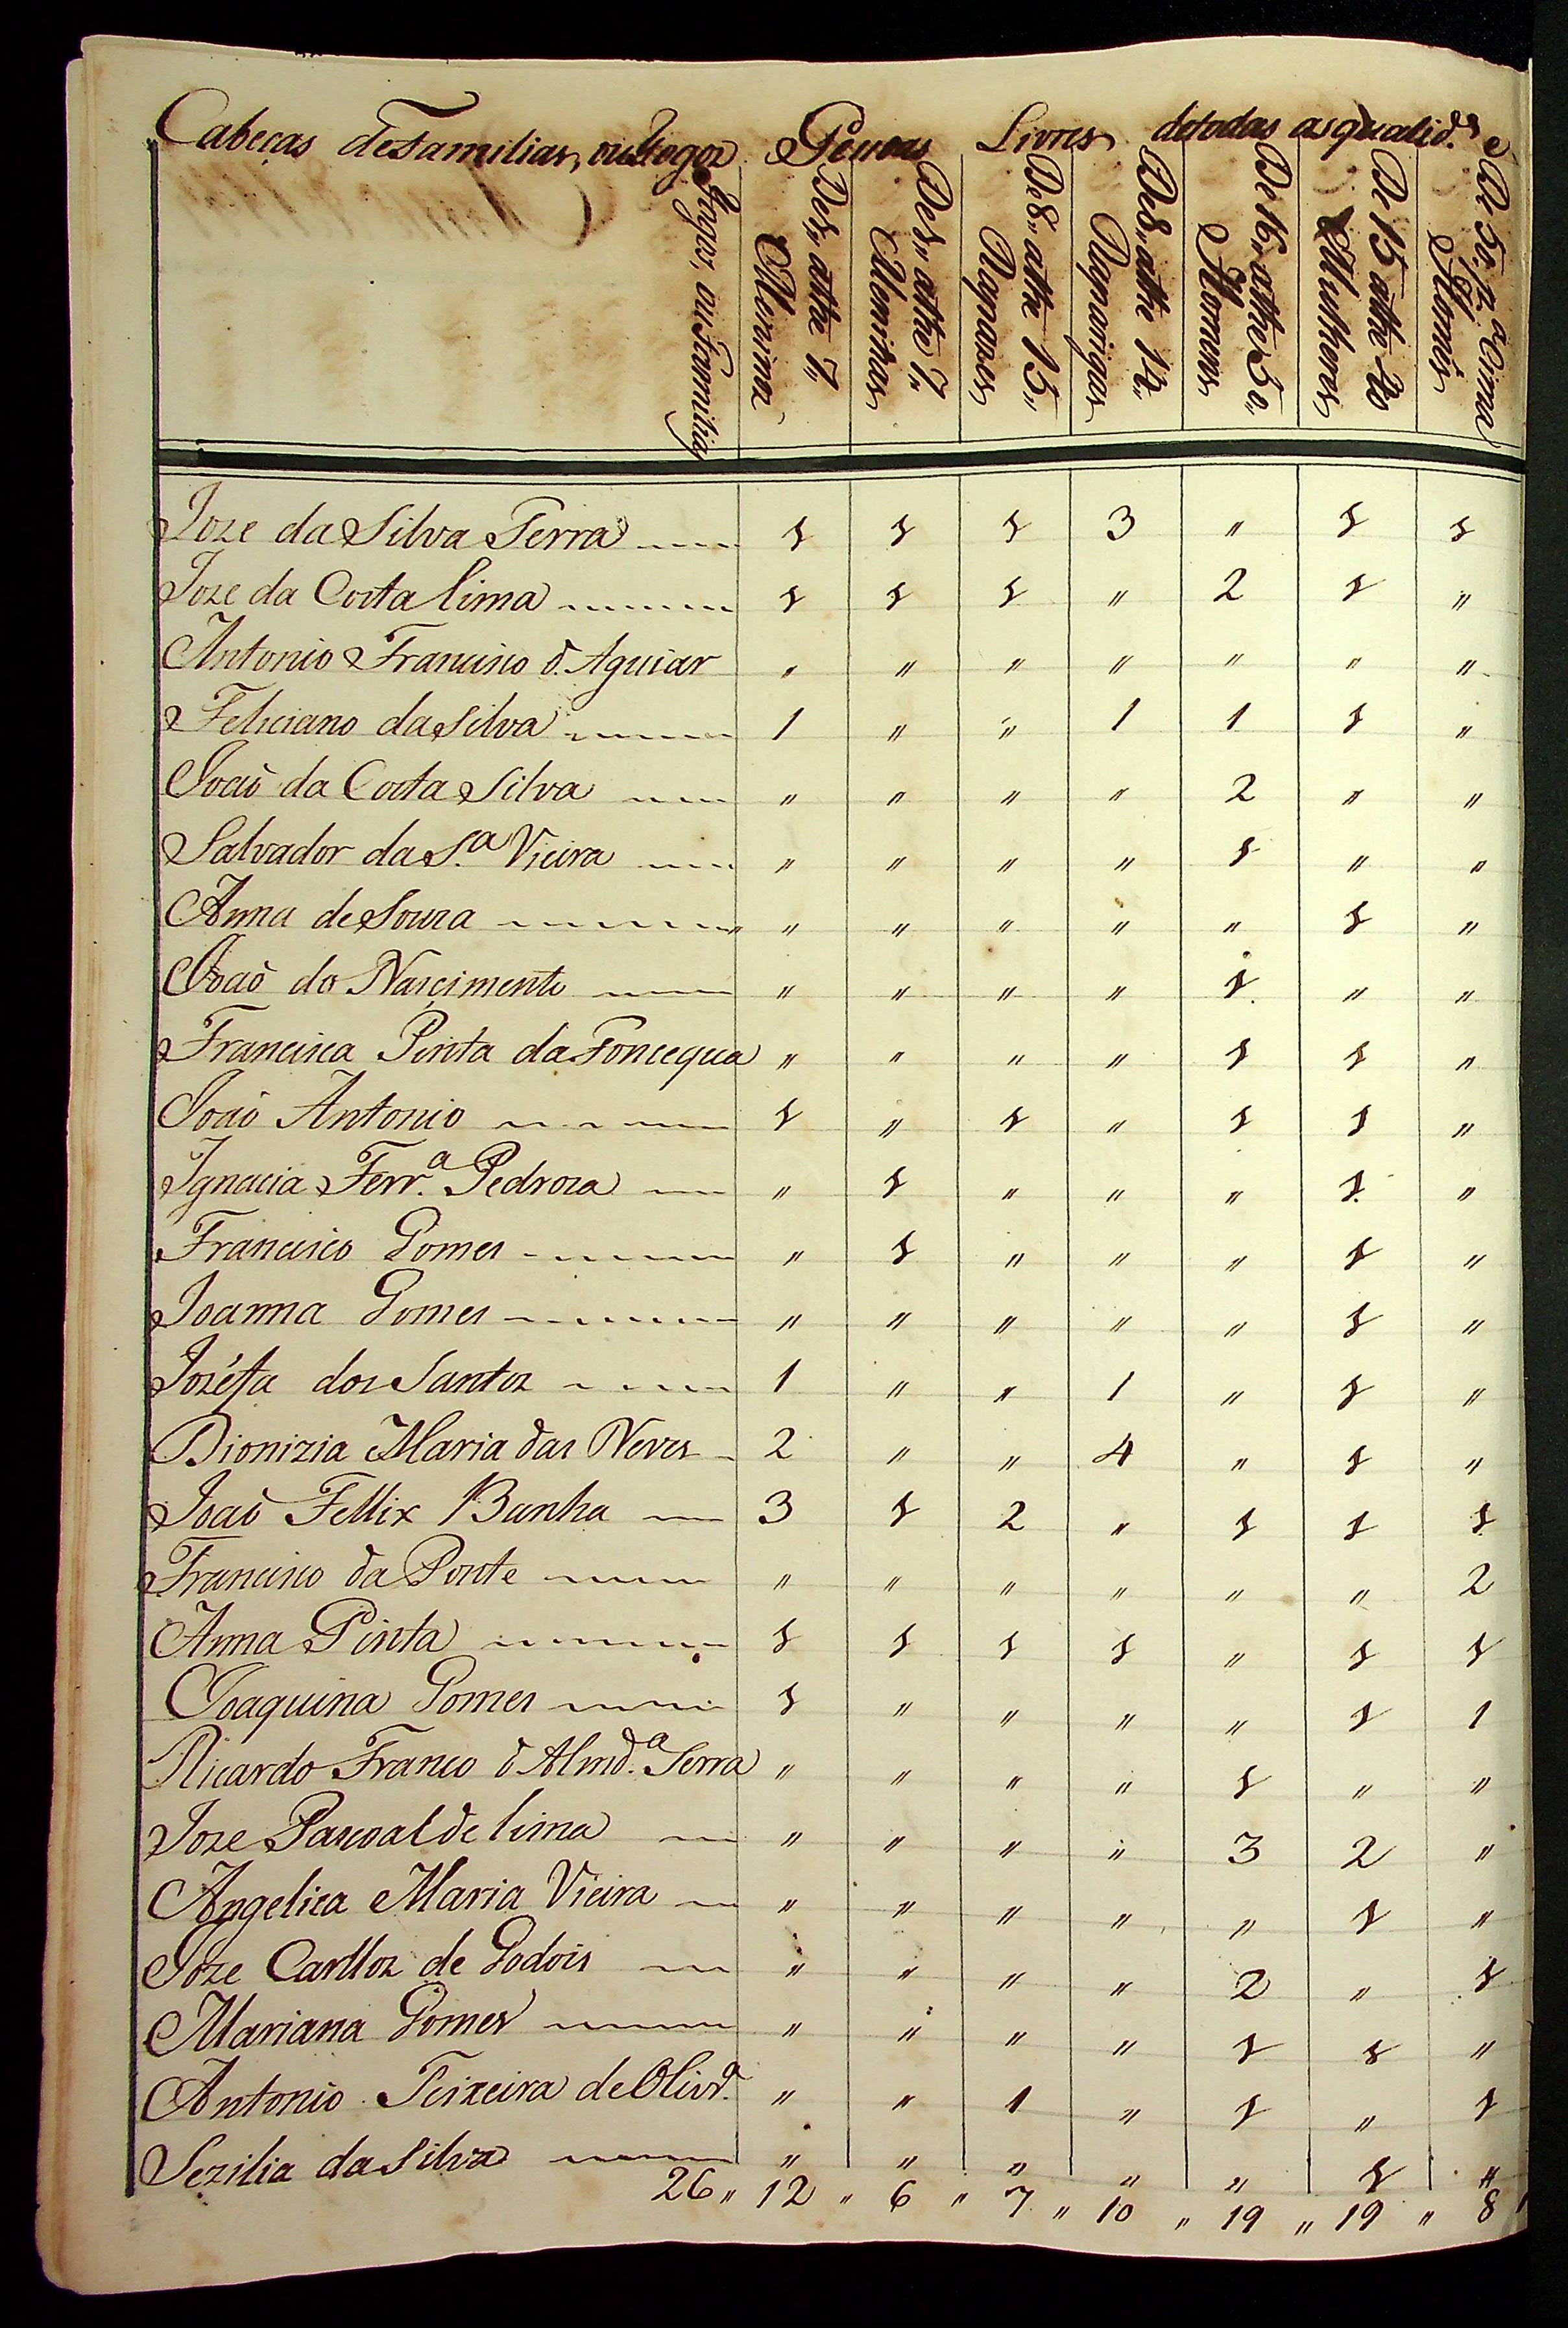 Cabeças de Familias, ou Fogoz Pessoas Livres de todas as qualid.es e
Fogos, ou Familias
De 1,, atthe 7,, Meninoz
De 1,, atthe 7,, Meninas
De 8,, atthe 15,, Rapazes
De 8,, atthe 14,, Raparigas
De 16,, atthe 50,, Homens
De 15 atthe 40 Mulheres
De 50,, p.a cima Homẽs
Joze da Silva Serra 1 1 1 3 " 1 1
Joze da Costa lima 1 1 1 " 2 1 "
Antonio Francisco d. Aguiar " " " " " " "
Feliciano da Silva 1 " " 1 1 1 "
João da Costa Silva " " " " 2 " "
Salvador da S.a Vieira " " " " 1 " "
Anna de Souza " " " " " 1 "
João do Nascimento " " " " 1 " "
Francisca Pinta da Foncequa " " " " 1 1 "
João Antonio 1 " 1 " 1 1 "
Ignacia Ferr.a Pedroza " 1 " " " 1 "
Francisco Gomes " 1 " " " 1 "
Joanna Gomes " " " " " 1 "
Jozéfa dos Santoz 1 " " 1 " 1 "
Dionizia Maria das Neves 2 " " 4 " 1 "
João Fellix Banha 3 1 2 " 1 1 1
Francisco da Ponte " " " " " " 2
Anna Pinta 1 1 1 1 " 1 1
Joaquina Gomes 1 " " " " 1 1
Ricardo Franco d Almd.a Serra " " " " 1 " "
Joze Pascoal de lima " " " " 3 2 "
Angelica Maria Vieira " " " " " 1 "
Joze Carlloz de Godois " " " " 2 " 1
Mariana Gomes " " " " 1 1 "
Antonio Teixeira de Oliv.a " " 1 " 1 " 1
Sezilia da Silva " " " " " 1 "
26 " 12 " 6 " 7 " 10 " 19 " 19 " 8